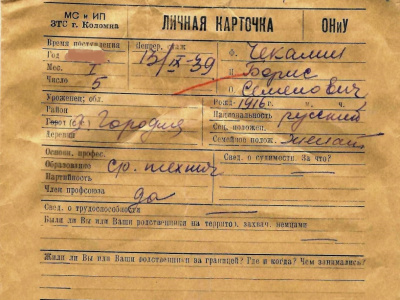 МС и ИП
ЗТС г. Коломна
ЛИЧНАЯ КАРТОЧКА
ОНиУ
Время поступления
Год
Мес. I
Число 5
Непрер. стаж
13/IX-39
Ф. Чекалин
И Борис
О Семенович
Рожд. 1916 г. ч.
Национальность русский
Соц. положен.
Семейное полож. Женат
Уроженец: обл.
Район
Город (с) Городня
Деревня
Основн. професс.
Образование ср. технич.
Партийность
Член профсоюза да
Свед. о судимости За что?
Свед. о трудоспособности
Были ли Вы или Ваши родственники на территор. захвач. немцами
Жили ли Вы или Ваши родственники за границей? Где и когда? Чем занимались?